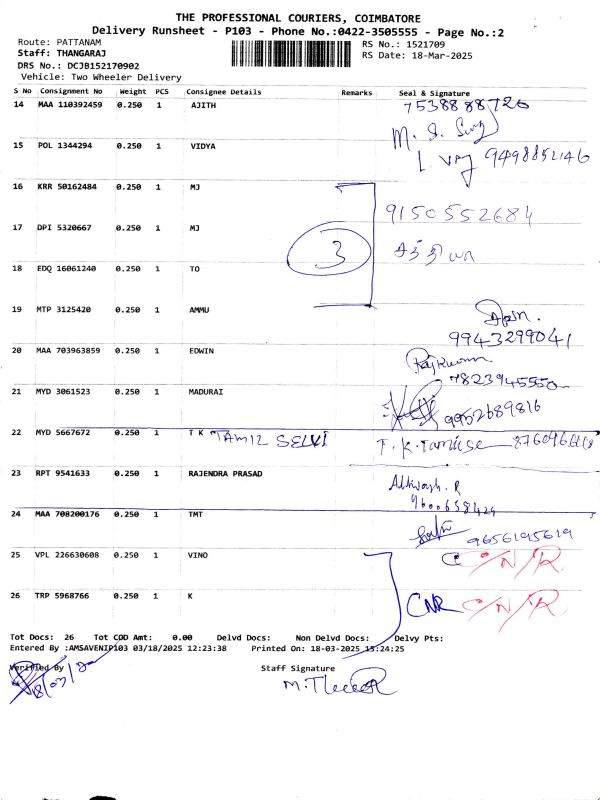 THE PROFESSIONAL COURIERS, COIMBATORE
Delivery Runsheet - P103 - Phone No.:0422-3505555 - Page No.:2
Route: PATTANAM
RS No.: 1521709
Staff: THANGARAJ
RS Date: 18-Mar-2025
DRS No.: DCJB152170902
Vehicle: Two Wheeler Delivery
S No Consignment No Weight PCS Consignee Details Remarks Seal & Signature
14 MAA 110392459 0.250 1 AJITH 7538888726
15 POL 1344294 0.250 1 VIDYA 9498852146
16 KRR 50162484 0.250 1 MJ 9150552684
17 DPI 5320667 0.250 1 MJ 3
18 EDQ 16061240 0.250 1 TO
19 MTP 3125420 0.250 1 AMMU 9943299041
20 MAA 703963859 0.250 1 EDWIN Rajkumar 7823945550
21 MYD 3061523 0.250 1 MADURAI 9952689816
22 MYD 5667672 0.250 1 T K TAMIL SELVI T.K.
23 RPT 9541633 0.250 1 RAJENDRA PRASAD 9600658429
24 MAA 708200176 0.250 1 TMT 9656195619
25 VPL 226630608 0.250 1 VINO C/N/R
26 TRP 5968766 0.250 1 K CNR C/N/R
Tot Docs: 26 Tot COD Amt: 0.00 Delvd Docs: Non Delvd Docs: Delvy Pts:
Entered By :AMSAVENIP103 03/18/2025 12:23:38 Printed On: 18-03-2025 15:24:25
Verified By Staff Signature